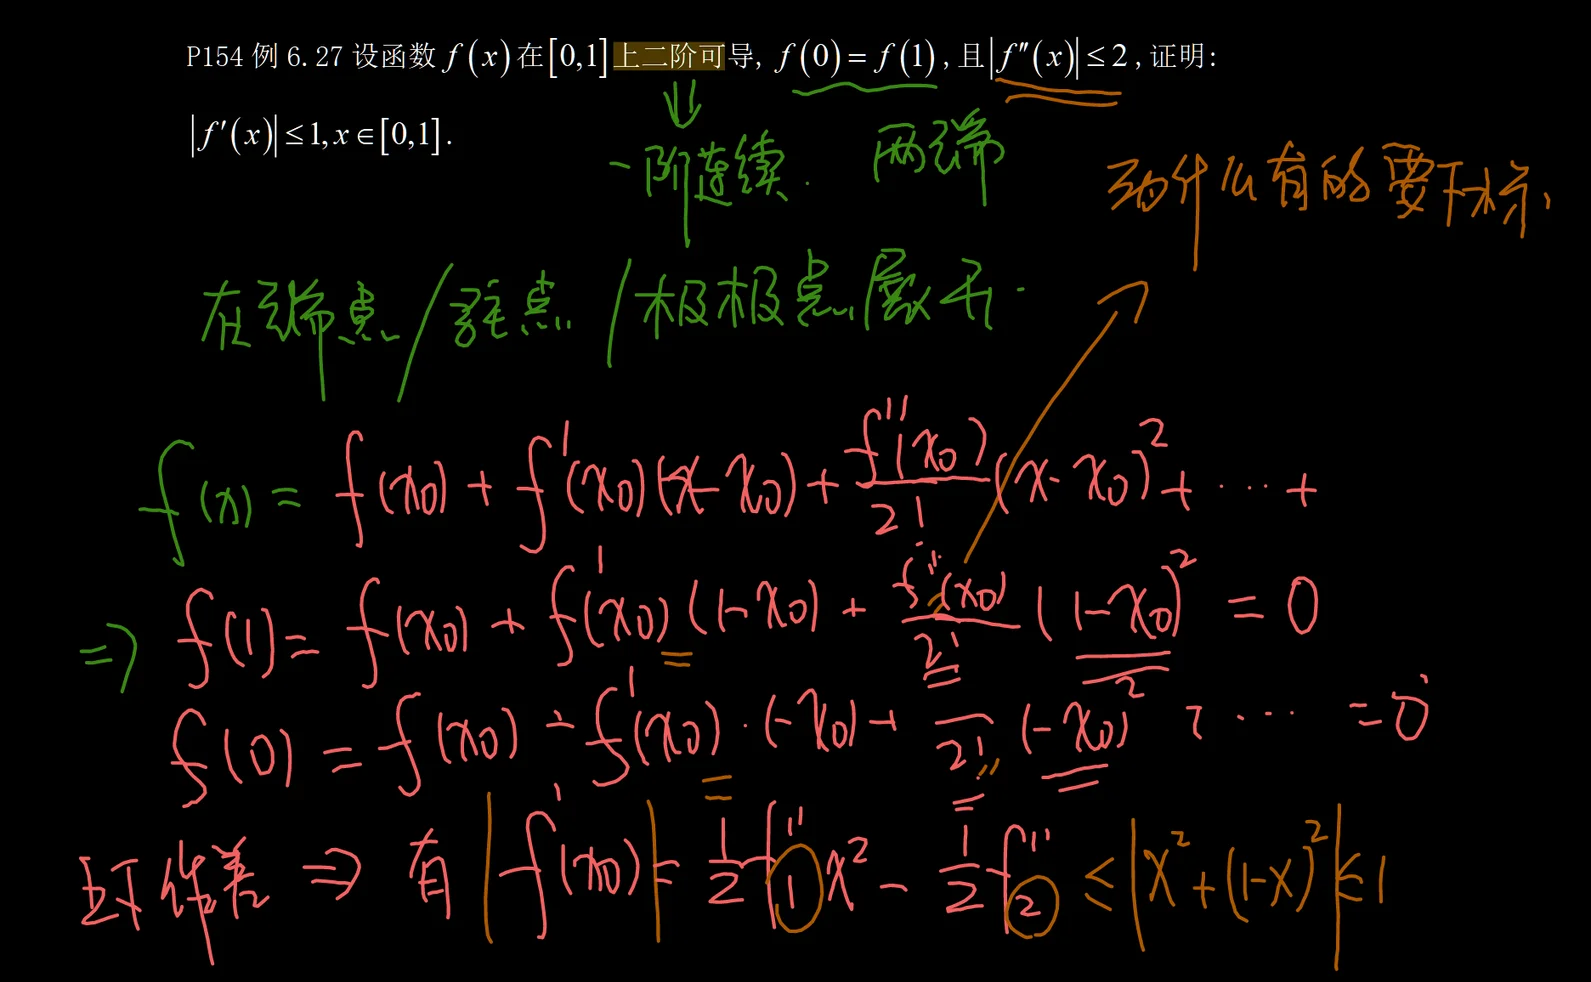 P154 例 6.27 设函数 f(x) 在 [0,1] 上二阶可导, f(0) = f(1), 且 |f″(x)| ≤ 2, 证明:
|f′(x)| ≤ 1, x ∈ [0,1].
一阶连续. 两端
为什么有的要下标,
在端点/驻点/极极点展开.
f(x) = f(x₀) + f′(x₀)(x-x₀) + f″(x₀)/2! (x-x₀)² + ⋯ +
⇒ f(1) = f(x₀) + f′(x₀)(1-x₀) + f″(x₀)/2! (1-x₀)² = 0
f(0) = f(x₀) + f′(x₀)·(-x₀) + /2! (-x₀)² ⋯ = 0
作差 ⇒ 有 |f′(x₀)| = 1/2 f″₁ x² - 1/2 f″₂ ≤ |x² + (1-x)²| ≤ 1